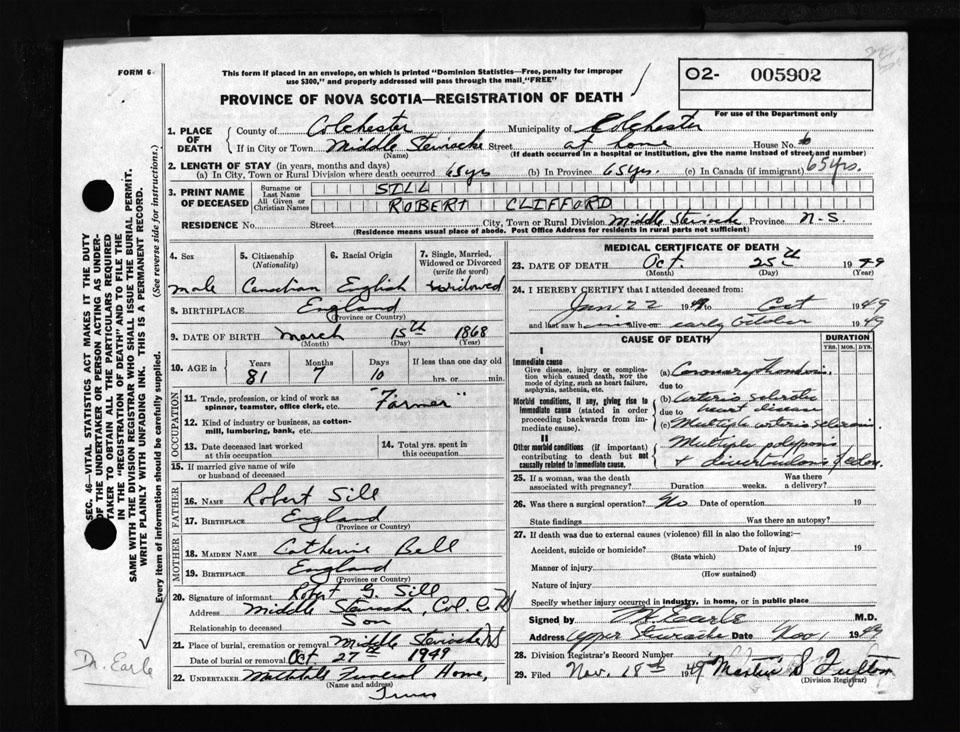 FORM 6
This form if placed in an envelope, on which is printed "Dominion Statistics—Free, penalty for improper
use $300," and properly addressed will pass through the mail "FREE"
O2- 005902
For use of the Department only
PROVINCE OF NOVA SCOTIA—REGISTRATION OF DEATH
1. PLACE OF DEATH
County of Colchester Municipality of Colchester
If in City or Town Middle Stewiacke Street at home House No.
(Name) (If death occurred in a hospital or institution, give the name instead of street and number)
2. LENGTH OF STAY (in years, months and days)
(a) In City, Town or Rural Division where death occurred 65 yrs (b) In Province 65 yrs. (c) In Canada (if immigrant) 65 yrs.
3. PRINT NAME OF DECEASED
Surname or Last Name SILL
All Given or Christian Names ROBERT CLIFFORD
RESIDENCE No. Street City, Town or Rural Division Middle Stewiacke Province N.S.
(Residence means usual place of abode. Post Office Address for residents in rural parts not sufficient)
4. Sex 5. Citizenship (Nationality) 6. Racial Origin 7. Single, Married, Widowed or Divorced (write the word)
male Canadian English widowed
8. BIRTHPLACE England
(Province or Country)
9. DATE OF BIRTH March 15th 1868
(Month) (Day) (Year)
10. AGE in Years Months Days If less than one day old
81 7 10 hrs. or min.
OCCUPATION
11. Trade, profession, or kind of work as spinner, teamster, office clerk, etc. "Farmer"
12. Kind of industry or business, as cotton-mill, lumbering, bank, etc.
13. Date deceased last worked at this occupation
14. Total yrs. spent in this occupation
15. If married give name of wife or husband of deceased
FATHER
16. NAME Robert Sill
17. BIRTHPLACE England
(Province or Country)
MOTHER
18. MAIDEN NAME Catherine Bell
19. BIRTHPLACE England
(Province or Country)
20. Signature of informant Robert G. Sill
Address Middle Stewiacke, Col. Co.
Relationship to deceased Son
21. Place of burial, cremation or removal Middle Stewiacke
Date of burial or removal Oct 27th 1949
22. UNDERTAKER Funeral Home,
(Name and address) Truro
MEDICAL CERTIFICATE OF DEATH
23. DATE OF DEATH Oct 25th 1949
(Month) (Day) (Year)
24. I HEREBY CERTIFY that I attended deceased from:
Jan 22 1949 to Oct 1949
and last saw him alive on early October 1949
CAUSE OF DEATH
DURATION
YRS. MOS. DYS.
I
Immediate cause
Give disease, injury or complication which caused death, not the mode of dying, such as heart failure, asphyxia, asthenia, etc.
(a) Coronary Thrombosis.
due to
Morbid conditions, if any, giving rise to immediate cause (stated in order proceeding backwards from immediate cause).
(b) Arterio sclerotic
due to heart disease
(c) Multiple arterio sclerosis.
II
Other morbid conditions (if important) contributing to death but not causally related to immediate cause.
Multiple polyposis
+ diverticulosis of colon.
25. If a woman, was the death associated with pregnancy? Duration weeks. Was there a delivery?
26. Was there a surgical operation? No Date of operation 19
State findings Was there an autopsy?
27. If death was due to external causes (violence) fill in also the following:—
Accident, suicide or homicide? Date of injury 19
(State which)
Manner of injury
(How sustained)
Nature of injury
Specify whether injury occurred in industry, in home, or in public place
Signed by Earle M.D.
Address Upper Stewiacke Date Nov 1 1949
28. Division Registrar's Record Number
29. Filed Nov. 18th 1949 S. Fulton
(Division Registrar)
SEC. 46—VITAL STATISTICS ACT MAKES IT THE DUTY
OF THE UNDERTAKER OR PERSON ACTING AS UNDERTAKER TO OBTAIN ALL THE PARTICULARS REQUIRED
IN THE "REGISTRATION OF DEATH" AND TO FILE THE
SAME WITH THE DIVISION REGISTRAR WHO SHALL ISSUE THE BURIAL PERMIT.
WRITE PLAINLY WITH UNFADING INK. THIS IS A PERMANENT RECORD.
Every item of information should be carefully supplied. (See reverse side for instructions.)
Dr. Earle